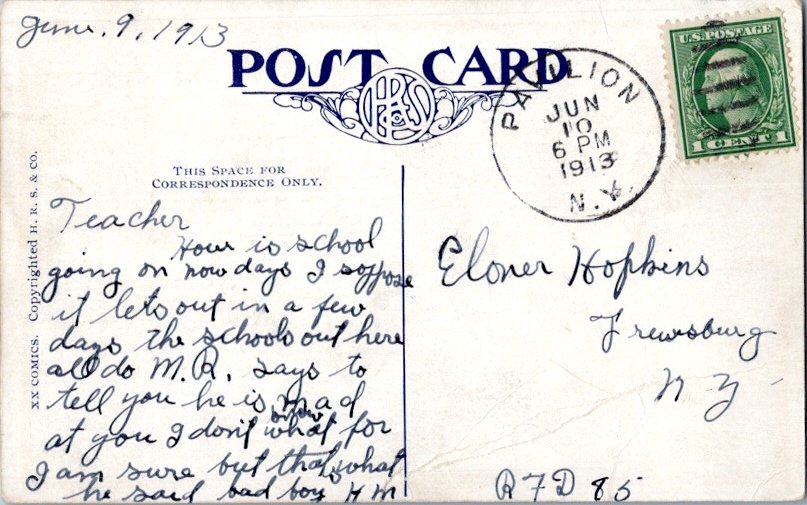 June. 9, 1913
POST CARD
HRS & Co
THIS SPACE FOR
CORRESPONDENCE ONLY.
XX COMICS. Copyrighted H. R. S. & CO.
Teacher
How is school
going on now days I soppose
it lets out in a few
days the schools out here
all do M.R. says to
tell you he is mad
at you I don't know what for
I am sure but that is what
he said bad boy H M
PAVILION
JUN
10
6 PM
1913
N.Y.
U.S. POSTAGE
1 CENT 1
Eloner Hopkins
Frewsburg
N Y
R F D 85